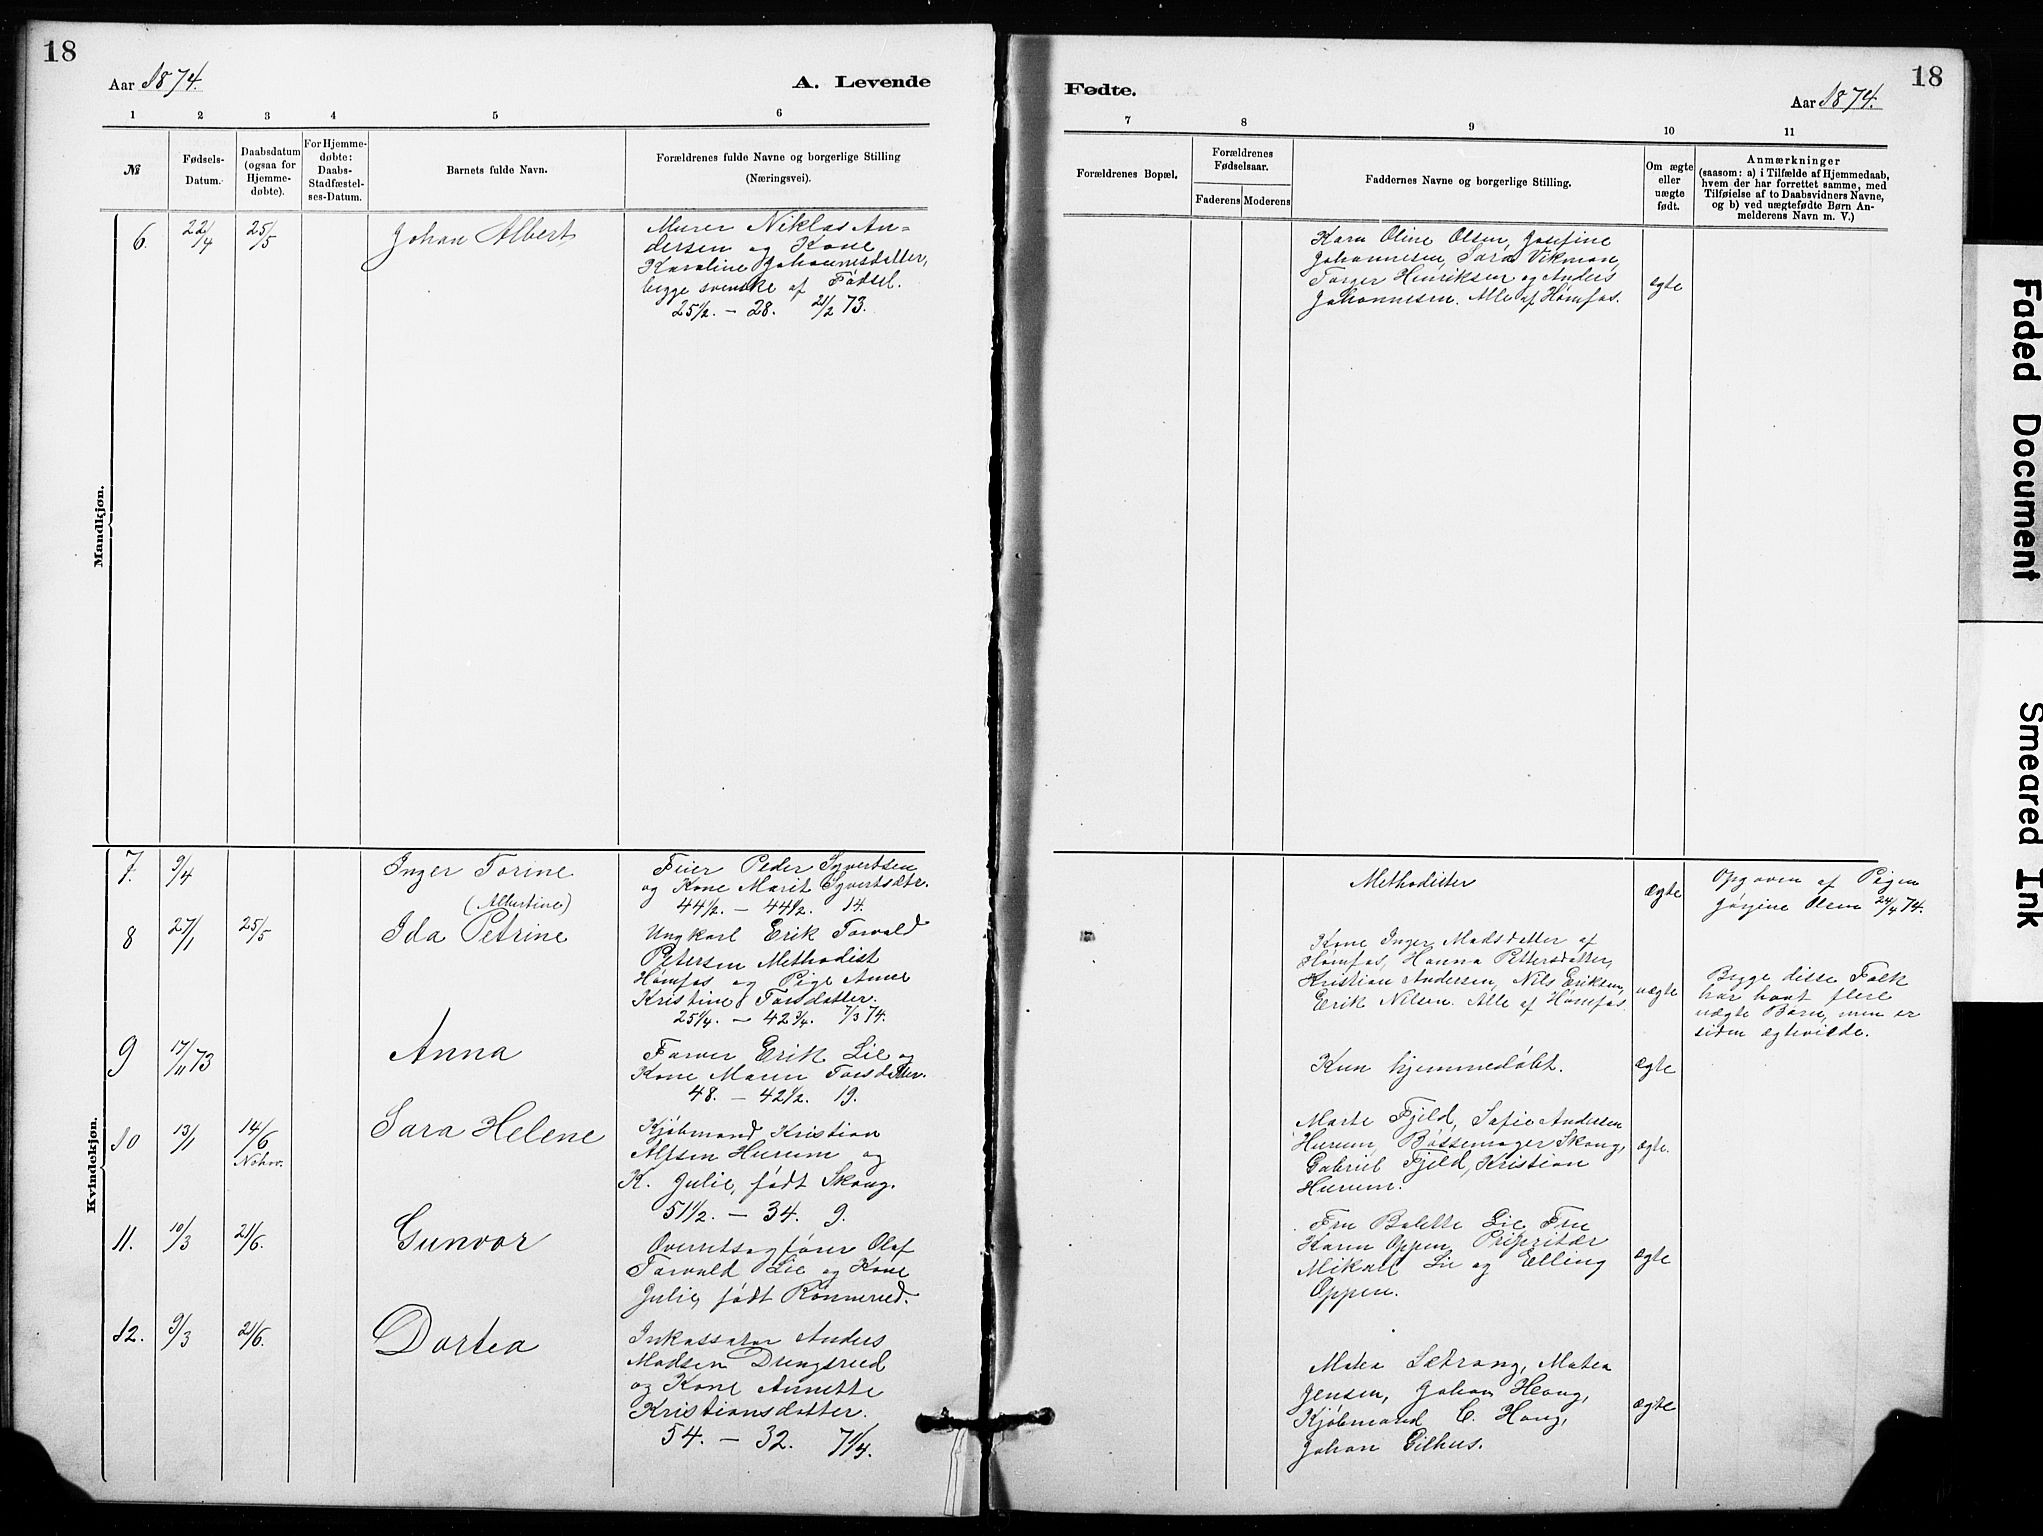 18
Aar 1874.
A. Levende
1 2 3 4 5 6
№
Fødsels-
Datum.
Daabsdatum
(ogsaa for
Hjemme-
døbte).
For Hjemme-
døbte:
Daabs-
Stadfæstel-
ses-Datum.
Barnets fulde Navn.
Forældrenes fulde Navne og borgerlige Stilling
(Næringsvei).
Mandkjøn.
6. 22/4 25/5 Johan Albert
Murer Niklas An-
dersen og Kone
Karoline Johannesdatter,
begge svenske af Fødsel.
25 1/2. – 28. 21/2 73.
Kvindekjøn.
7. 9/4 Inger Torine
Feier Peder Syvertsen
og Kone Marit Syvertsdtr.
44 1/2. – 44 1/2. 14.
8 27/1 25/5 (Albertine)
Ida Petrine
Ungkarl Erik Torvald
Petersen Methodist
Hømfos og Pige Anne
Kristine Torsdatter.
25 1/4. – 42 3/4. 7/3 74.
9 17/11 73 Anna
Farver Erik Lie og
Kone Maren Torsdatter.
48. – 42 1/2. 19.
10 13/1 14/6 Sara Helene
Kjøbmand Kristian
Alfsen Hurum og
K. Julie, født Skoug.
51 1/2. – 34. 9.
11. 10/3 21/6. Gunvor
Overretsagfører Olaf
Torvald Lie og Kone
Julie, født Rønnerud.
12. 9/3 21/6. Dortea
Inkassator Anders
Madsen Dungsrud
og Kone Annette
Kristiansdatter.
54. – 32. 7 1/4.
Fødte.
Aar 1874.
18
7 8 9 10 11
Forældrenes Bopæl.
Forældrenes
Fødselsaar.
Faderens Moderens
Faddernes Navne og borgerlige Stilling.
Om ægte
eller
uægte
født.
Anmærkninger
(saasom: a) i Tilfælde af Hjemmedaab,
hvem der har forrettet samme, med
Tilføielse af to Daabsvidners Navne,
og b) ved uægtefødte Børn An-
melderens Navn m. V.)
Karn Oline Olsen, Josefine
Johannesen, Sara Vikman,
Torger Henriksen og Anders
Johannesen. Alle af Hømfos.
ægte
Methodister
Ægte
Opgaven af Pigen
Jørgine Olsen 24/4 74.
Kone Inger Madsdatter af
Hømfos, Hanna Pettersdatter,
Kristian Andersen, Nils Eriksen,
Erik Nilsen. Alle af Hømfos.
uægte
Begge disse Folk
har havt flere
uægte Børn, men er
siden ægteviede.
Kun hjemmedøbt.
Ægte
Marte Fjeld, Sofie Andersen
Hurum, Bøssemager Skoug,
Gabriel Fjeld, Kristian
Hurum.
ægte.
Fru Bolette Lie Fru
Karen Oppen,
Mikael Lie og Elling
Oppen.
ægte
Matea Sætrang, Matea
Jensen, Johan Houg,
Kjøbmand C. Houg,
Johan Gilhus.
ægte
Faded Document
Smeared Ink